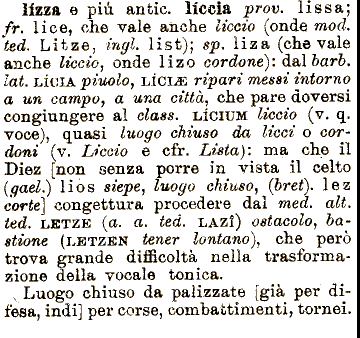 lizza e più antic. liccia prov. lissa;
fr. lice, che vale anche liccio (onde mod.
ted. Litze, ingl. list); sp. liza (che vale
anche liccio, onde lizo cordone): dal barb.
lat. LÍCIA piuolo, LÍCIÆ ripari messi intorno
a un campo, a una città, che pare doversi
congiungere al class. LÍCIUM liccio (v. q.
voce), quasi luogo chiuso da licci o cor-
doni (v. Liccio e cfr. Lista): ma che il
Diez [non senza porre in vista il celto
(gael.) lios siepe, luogo chiuso, (bret). lez
corte] congettura procedere dal med. alt.
ted. LETZE (a. a. ted. LAZÎ) ostacolo, ba-
stione (LETZEN tener lontano), che però
trova grande difficoltà nella trasforma-
zione della vocale tonica.
Luogo chiuso da palizzate [già per di-
fesa, indi] per corse, combattimenti, tornei.